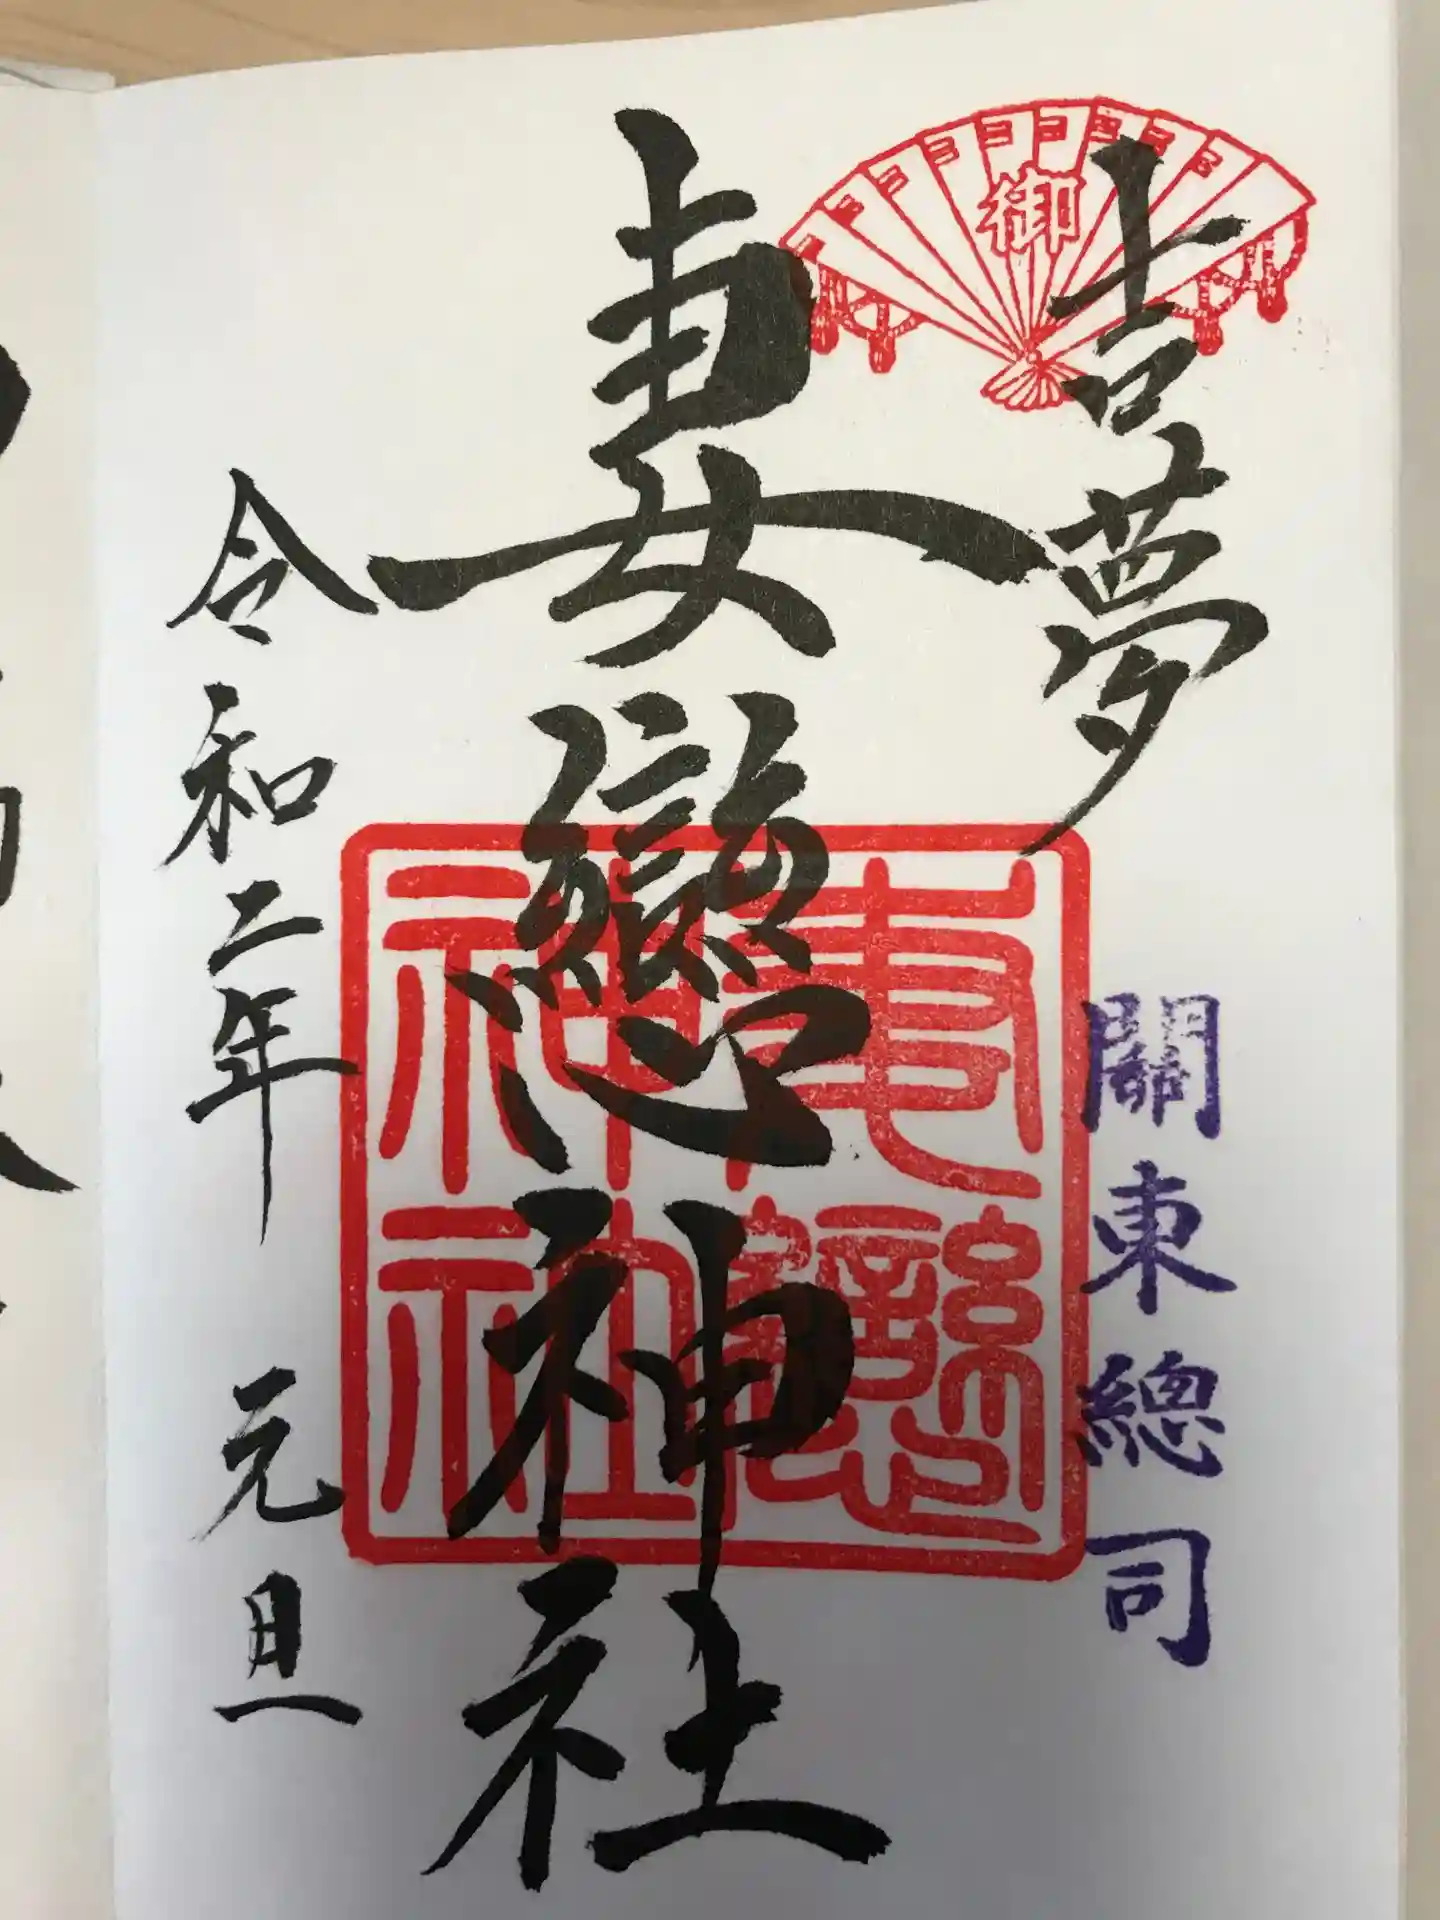 御
吉夢
關東總司
妻戀神社
妻戀神社
令和二年 元旦